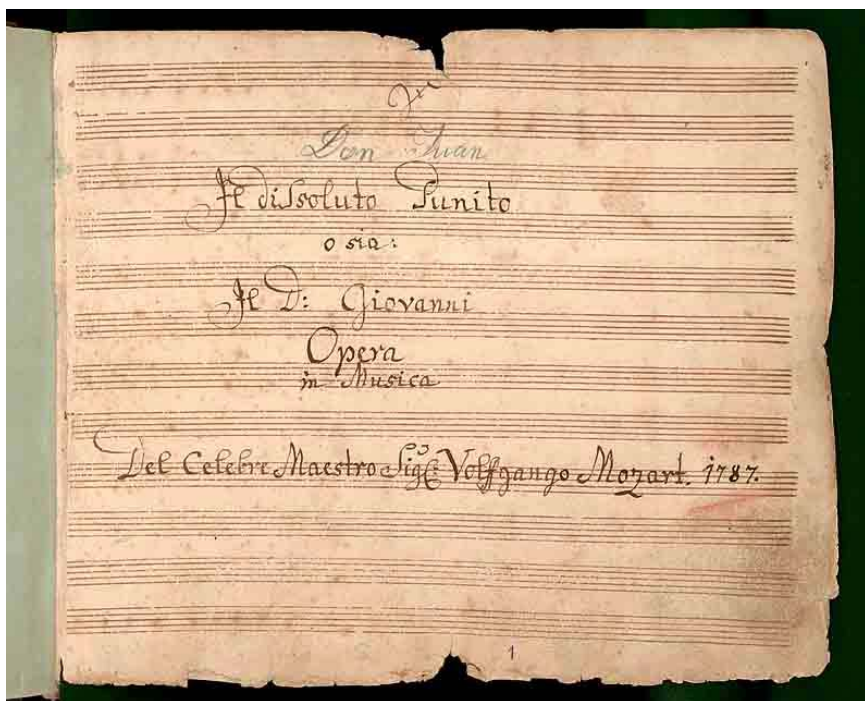 Don Juan
Il dissoluto Punito
o sia:
Il D: Giovanni
Opera
in Musica
Del Celebre Maestro Sigre Volffgango Mozart. 1787.
1